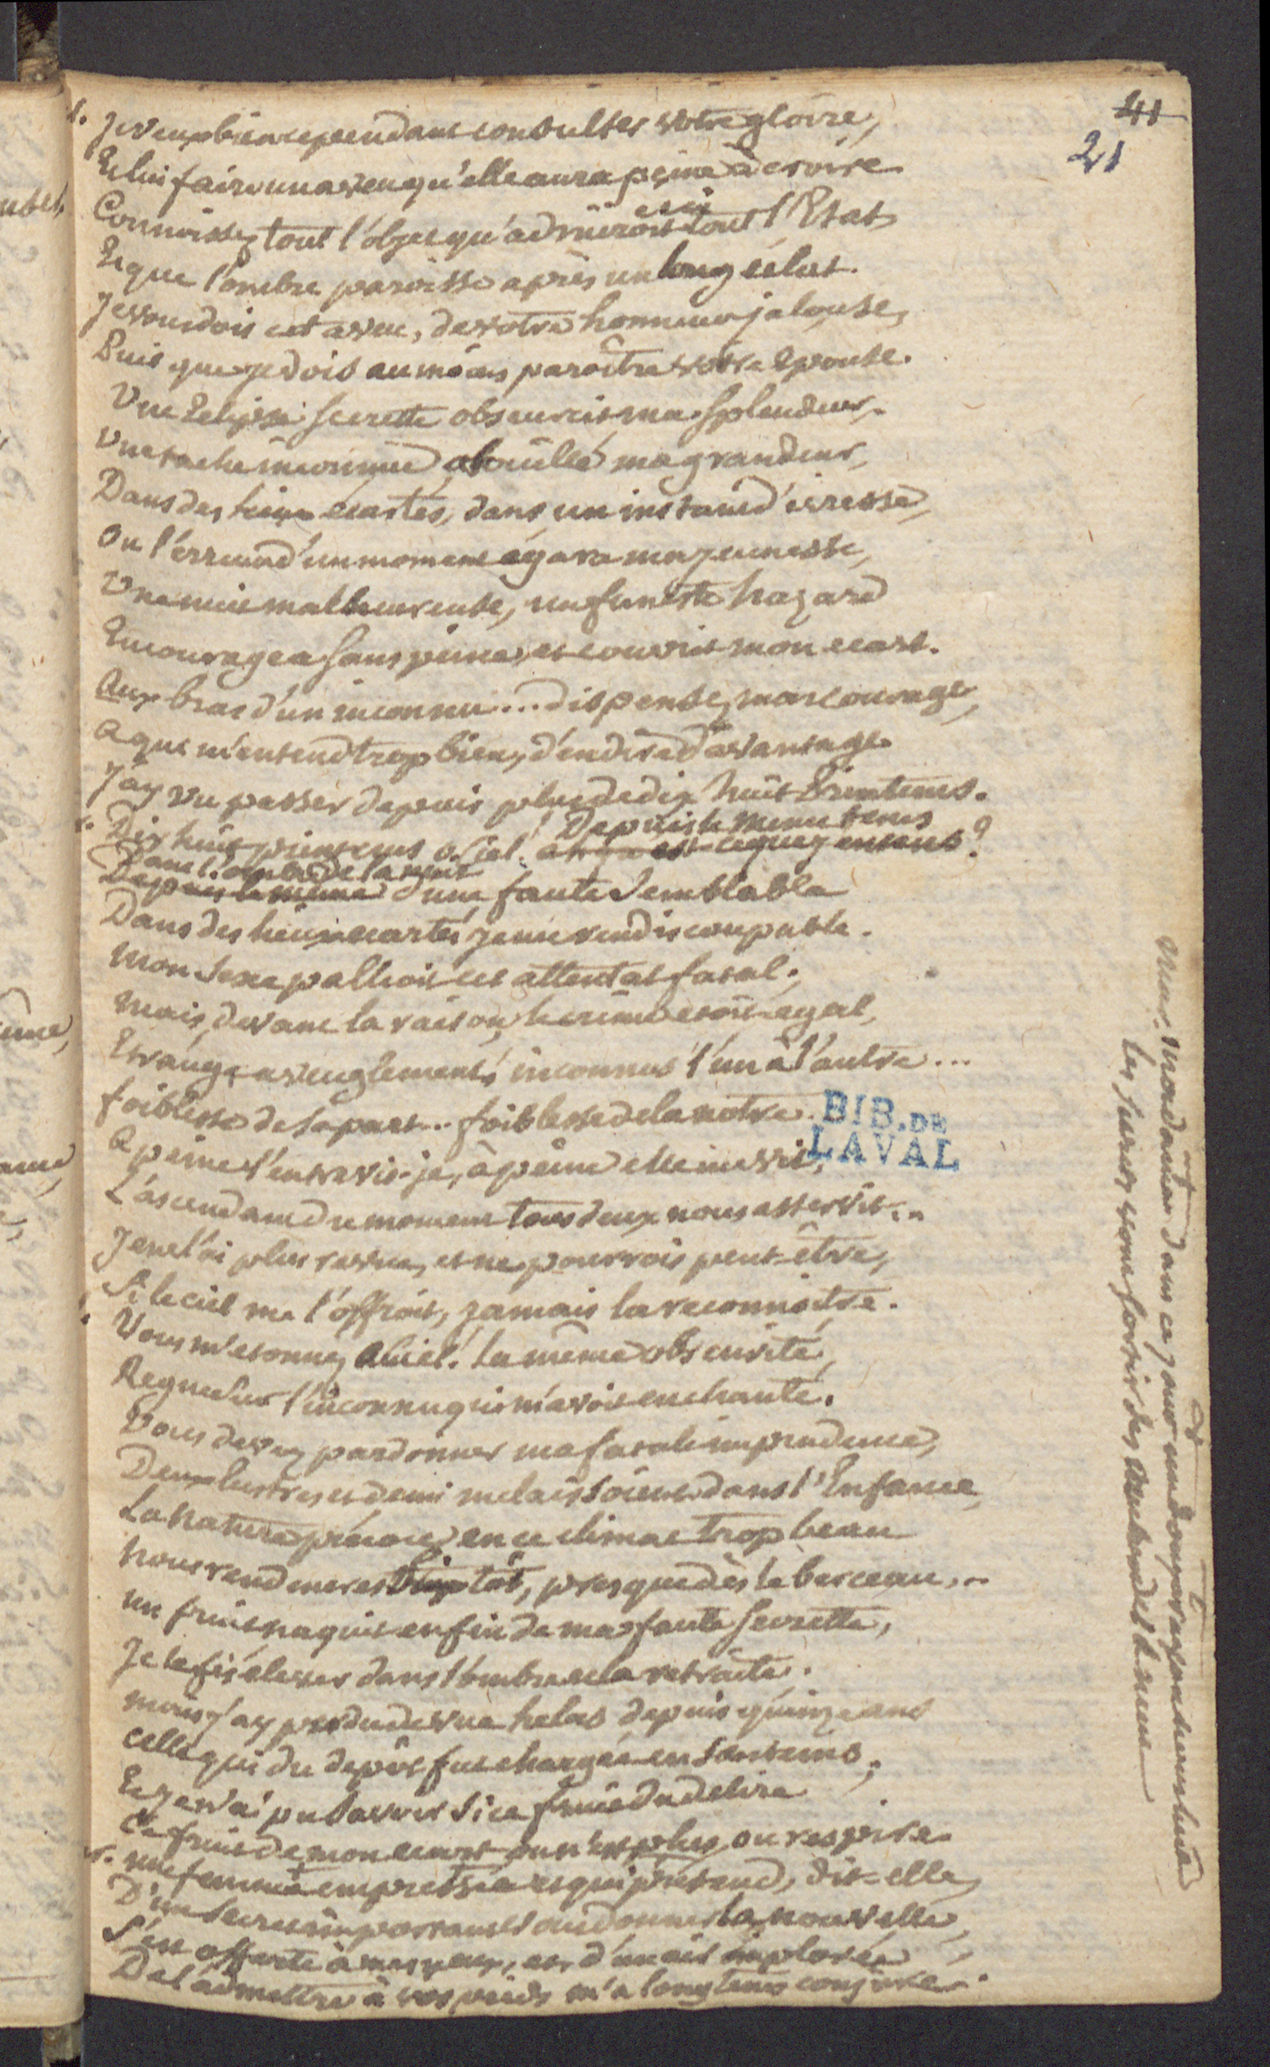 41
21
1. Je veux bien cependant consulter votre gloire,
Et lui faire un aveu qu'elle aura peine à croire
Connoissez tout l'objet qu'admiroit tout l'Etat,
Et que l'ombre paroisse après un long éclat.
Je vous dois cet aveu, de votre honneur jalouse,
Puis que je dois au moins paroître votre Epouse.
Une Eclipse secrette obscurcit ma splendeur.
Une tache inconnue a souillé ma grandeur,
Dans des lieux écartés, dans un instant d'ivresse,
Ou l'erreur d'un moment égara ma jeunesse,
Une nuit malheureuse, un funeste hazard
Encouragea sans peine, et couvrit mon ecart.
Aux bras d'un inconnu... dispensez mon courage,
A qui m'entend trop bien, d'en dire d'avantage.
J'ay vu passer depuis plus de dix huit Printems.
Depuis le meme tems
Dix huit printems o Ciel! ah qu'est ce que j'entens?
Dans l'ombre de la nuit
Depuis le même d'une faute semblable
Dans des lieux ecartés je me rendis coupable.
Mon sexe pallioit cet attentat fatal;
Mais, devant la raison, le crime etoit egal,
Etrange aveuglement! inconnus l'un à l'autre...
foiblesse de sa part... foiblesse de la notre.
A peine l'entrevis-je, à peine elle me vit,
L'ascendant du moment tous deux nous asservit...
Je ne l'ai plus revue, et ne pourrois peut-être,
Si le ciel me l'offroit, jamais la reconnoitre.
Vous m'etonnez, o Ciel! la même obscurité,
Regne sur l'inconnu qui m'avoit enchanté.
Vous devez pardonner ma fatale imprudence,
Deux lustres et demi me laissoient dans l'Enfance,
La nature précoce, en ce climat trop beau
Nous rend meres bientôt, presque dès le berceau...
un fruit naquit enfin de ma faute secrette,
Je le fis élever dans l'ombre et la retraite.
mais j'ay perdu de vue helas depuis quinze ans
celle qui du depôt fut chargée en son tems;
Et je n'ai pu savoir si ce fruit du delire
Ce fruit de mon ecart ou n'est plus, ou respire
une femme empressée et qui prétend, dit-elle,
D'un secret important vous donner la nouvelle,
S'est offerte à mes yeux, et d'un air éploré
De l'admettre à vos pieds m'a longtems conjuré.
mais, madame, dans ce jour
les suivre vous sortir des
BIB. DE
LAVAL